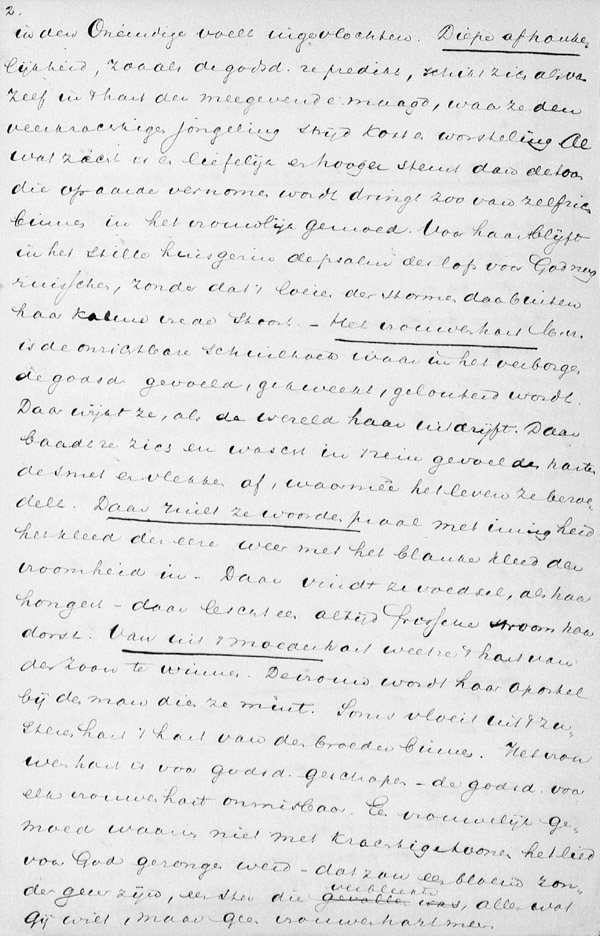 2.
in den Oneindige voelt ingevlochten. Diepe afhanke-
lijkheid, zooals de godsd. ze predikt, schikt zich als van
zelf in 't hart der meegevende maagd, waar ze den
veerkrachtigen jongeling strijd kost en worsteling. Al
wat zacht is en liefelijk en hooger stemt dan de toon
die op aarde vernomen wordt dringt zoo van zelf
binnen in het vrouwlijk gemoed. Voor haar blijft
in het stille huisgezin de psalm des lofs voor God
ruisschen, zonder dat 't loeien der stormen daarbuiten
haar kalmen vrede stoort. – Het vrouwenhart
is de onzichtbare schuilhoek waar in het verborgen
de godsd. gevoed, gekweekt, gelouterd wordt.
Daar wijkt ze, als de wereld haar uitdrijft. Daar
baadt ze zich en wascht in 't rein gevoel des harten
de smet en vlekken af, waarmeê het leven ze bezoe-
delt. Daar ruilt ze woordenpraal met innigheid
het kleed der eere weer met het blanke kleed der
vroomheid in. – Daar vindt ze voedsel, als haar
hongert – daar lescht een altijd frissche stroom haar
dorst. Van uit 't moederhart weet ze 't hart van
den zoon te winnen. De vrouw wordt haar apostel
bij den man dien ze mint. Soms vloeit uit 't zu-
sterenhart 't hart van den broeder binnen. Het vrou-
wenhart is voor godsd. geschapen – de godsd. voor
elk vrouwenhart onmisbaar. Een vrouwelijk ge-
moed waarin niet met krachtige toonen het lied
voor God gezongen werd – dat zou een bloem zon-
der geur zijn, een ster die verbleekte
gevallen was, alles wat
Gij wilt, maar geen vrouwenhart meer.